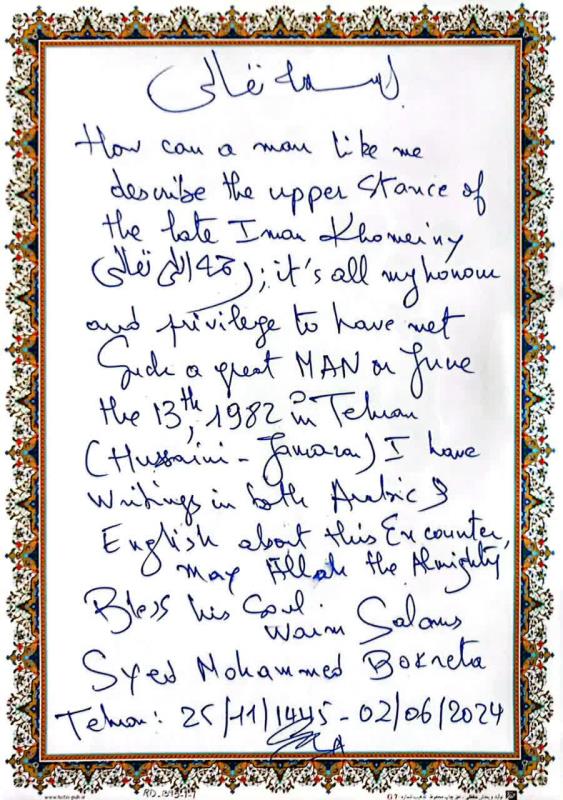 بسمه تعالى
How can a man like me
describe the upper Stance of
the late Imam Khomeiny
رحمه الله تعالى; it's all my honour
and privilege to have met
Such a great MAN on June
the 13th, 1982 in Tehran
(Hussaini - Jamaran) I have
Writings in both Arabic &
English about this Encounter,
may Allah the Almighty
Bless his Soul.
Warm Salams
Syed Mohammed Bokreta
Tehran: 25/11/1445 - 02/06/2024